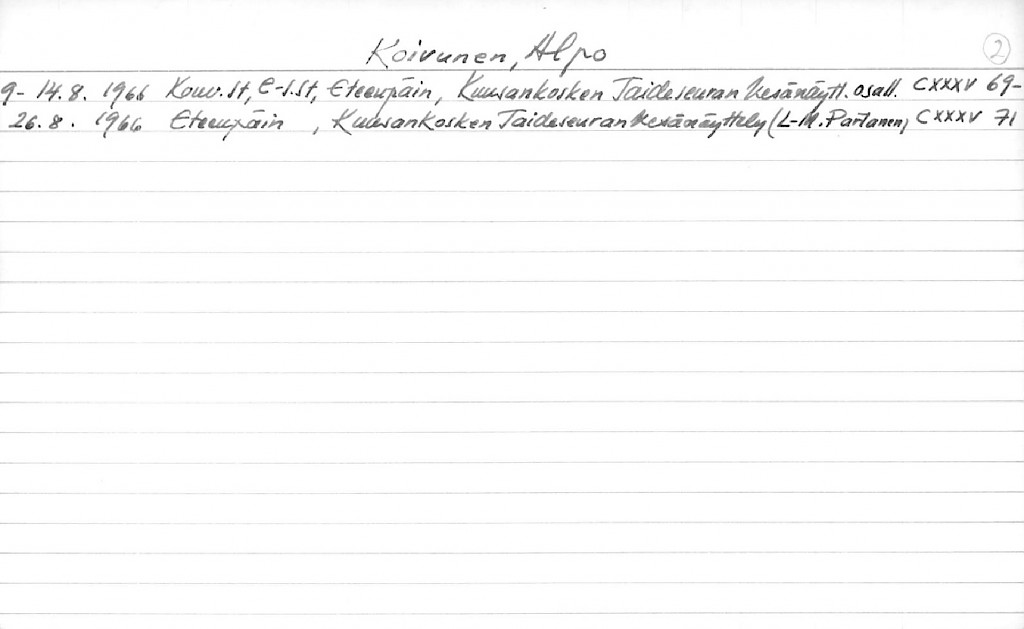 Koivunen, Alpo 2
9-14.8. 1966 Kouv.St, E-S.St, Eteenpäin, Kuusankosken Taideseuran Kesänäytt. osall. CXXXV 69-
26.8. 1966 Eteenpäin, Kuusankosken Taideseuran Kesänäyttely (L-M. Partanen) CXXXV 71